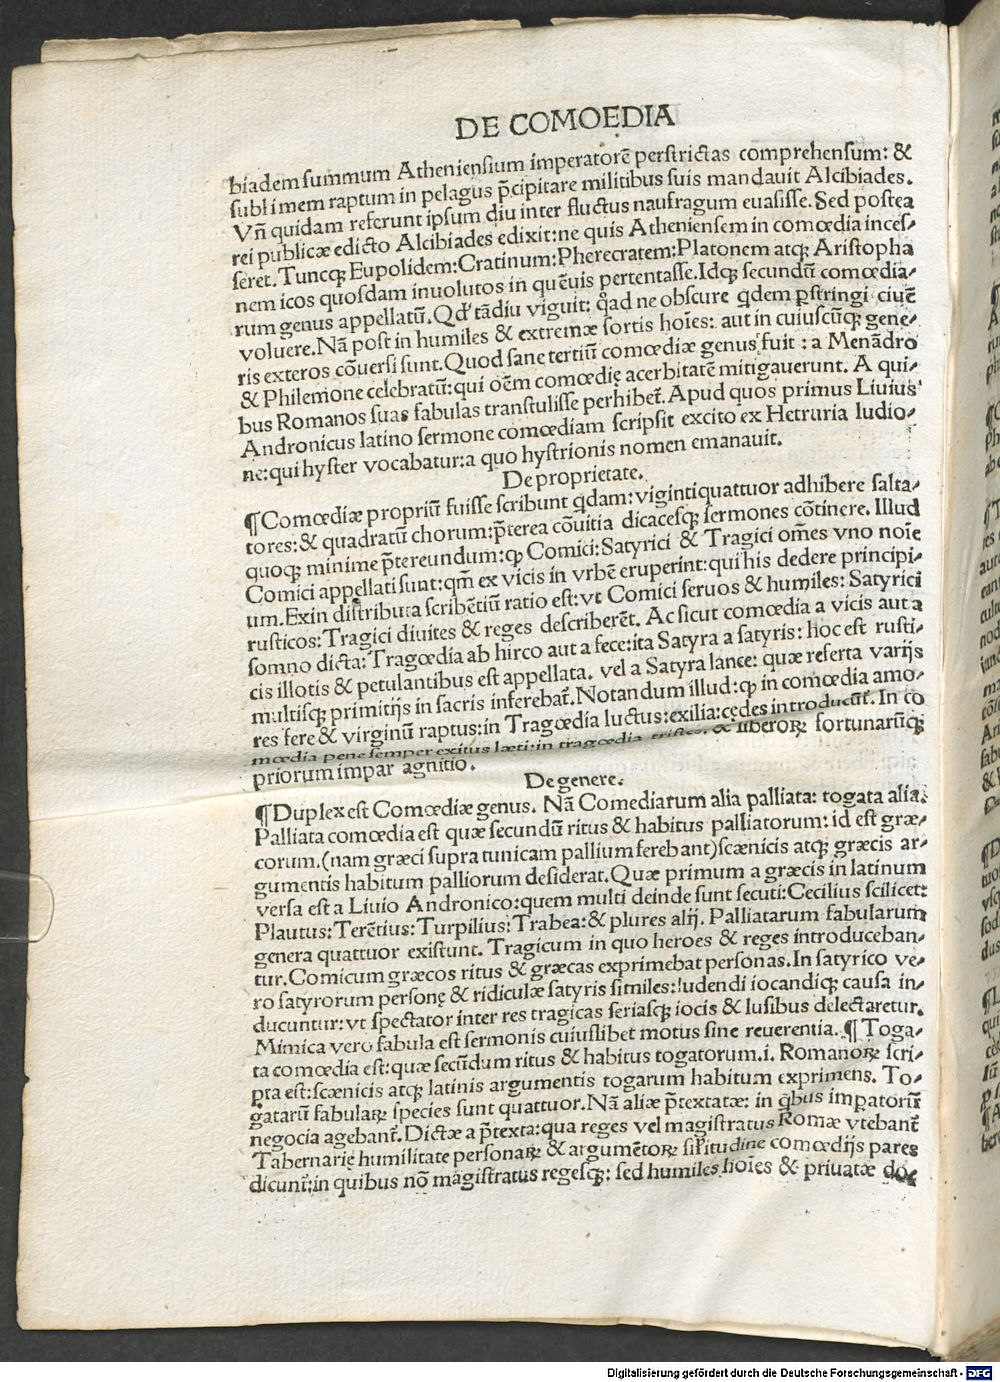 DE COMOEDIA
biadem summum Atheniensium imperatorē perstrictas comprehensum: &
sublimem raptum in pelagus p̄cipitare militibus suis mandauit Alcibiades.
Vn̄ quidam referunt ipsum diu inter fluctus naufragum euasisse. Sed postea
rei publicæ edicto Alcibiades edixit: ne quis Atheniensem in comœdia inces-
seret. Tuncqꝫ Eupolidem: Cratinum: Pherecratem: Platonem atqꝫ Aristopha
nem icos quosdam inuolutos in quēuis pertentasse. Idqꝫ secundū comœdia-
rum genus appellatū. Qd' tādiu viguit: qͦad ne obscure qͥdem ꝑstringi ciuē
voluere. Nā post in humiles & extremæ sortis hoīes: aut in cuiuscūqꝫ gene-
ris exteros cōuersi sunt. Quod sane tertiū comœdiæ genus fuit: a Menādro
& Philemone celebratū: qui oēm comœdię acerbitatē mitigauerunt. A qui-
bus Romanos suas fabulas transtulisse perhibet̄. Apud quos primus Liuius
Andronicus latino sermone comœdiam scripsit excito ex Hetruria ludio-
ne: qui hyster vocabatur: a quo hystrionis nomen emanauit.
De proprietate.
¶ Comœdiæ propriū fuisse scribunt qͥdam: vigintiquattuor adhibere salta-
tores: & quadratū chorum: p̄terea cōuitia dicacesqꝫ sermones cōtinere. Illud
quoqꝫ minime p̄tereundum: qꝫ Comici: Satyrici & Tragici om̄es vno noīe
Comici appellati sunt: qm̄ ex vicis in vrbē eruperint: qui his dedere principi-
um. Exin distributa scribētiū ratio est: vt Comici seruos & humiles: Satyrici
rusticos: Tragici diuites & reges describerēt. Ac sicut comœdia a vicis aut a
somno dicta: Tragœdia ab hirco aut a fece: ita Satyra a satyris: hoc est rusti-
cis illotis & petulantibus est appellata. vel a Satyra lance: quæ referta varijs
multisqꝫ primitijs in sacris inferebat̄. Notandum illud: qꝫ in comœdia amo-
res fere & virginū raptus: in Tragœdia luctus: exilia: cędes introducūt̄. In co
mœdia pene semper exitus læti: in tragœdia tristes. & liberoꝝ fortunarūqꝫ
priorum impar agnitio.
De genere.
¶ Duplex est Comœdiæ genus. Nā Comediarum alia palliata: togata alia.
Palliata comœdia est quæ secundū ritus & habitus palliatorum: id est græ-
corum. (nam græci supra tunicam pallium ferebant) scænicis atqꝫ græcis ar-
gumentis habitum palliorum desiderat. Quæ primum a græcis in latinum
versa est a Liuio Andronico: quem multi deinde sunt secuti: Cecilius scilicet:
Plautus: Terētius: Turpilius: Trabea: & plures alij. Palliatarum fabularum
genera quattuor existunt. Tragicum in quo heroes & reges introduceban-
tur. Comicum græcos ritus & græcas exprimebat personas. In satyrico ve-
ro satyrorum personę & ridiculæ satyris similes: ludendi iocandiqꝫ causa in-
ducuntur: vt spectator inter res tragicas seriasqꝫ iocis & lusibus delectaretur.
Mimica vero fabula est sermonis cuiuslibet motus sine reuerentia. ¶ Toga-
ta comœdia est: quæ secūdum ritus & habitus togatorum. i. Romanoꝝ scri-
pta est: scænicis atqꝫ latinis argumentis togarum habitum exprimens. To-
gatarū fabulaꝝ species sunt quattuor. Nā aliæ p̄textatæ: in qͥbus imꝑatoriū
negocia agebant̄. Dictæ a p̄texta: qua reges vel magistratus Romæ vtebant̄
Tabernarię humilitate personaꝝ & argumētoꝝ similitudine comœdijs pares
dicunt̄: in quibus nō magistratus regesqꝫ: sed humiles hoīes & priuatæ do-
Digitalisierung gefördert durch die Deutsche Forschungsgemeinschaft - DFG